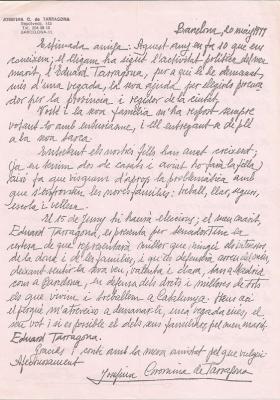 JOSEFINA C. de TARRAGONA
Sepúlveda, 163
BARCELONA-11
Barcelona, 20 maig 1977
Estimada amiga: Aquest any en fa 10 que ens
coneixem; el lligam ha sigut l'activitat política del meu
marit, l'Eduard Tarragona, per a qui le he demanat,
més d'una vegada, la seva ajuda, per elegir-lo procura
dor per la província i regidor de la ciutat.
Vostè i la seva família m'ha respost sempre
votant-lo amb entusiasme, i ell entregant-se de ple
a la seva tasca.
Mentrestant els nostres fills han anat creixent;
(ja en tenim dos de casats i aviat ho farà la filla)
així fa que visquem d'aprop la problemàtica amb
que s'enfronten les noves famílies: treball, llar, segur,
escola i vellesa.
El 15 de juny hi haurà eleccions; el meu marit,
Eduard Tarragona, es presenta per senador. Tinc la
certesa de que representarà millor que ningú els interessos
de la dona i de les famílies, i qui els defendrà arreu del món,
deixant sentir la seva veu, valenta i clara, tan a Madrid
com a Barcelona, en defensa dels drets i millores de tots
els que vivim i treballem a Catalunya. Heus ací
el perquè m'atreveixo a demanar-li, una vegada més, el
seu vot i si és possible el dels seus familiars, pel meu marit,
Eduard Tarragona.
Gràcies i conti amb la meva amistat pel que vulgui
Afectuosament
Josefina Coromina de Tarragona